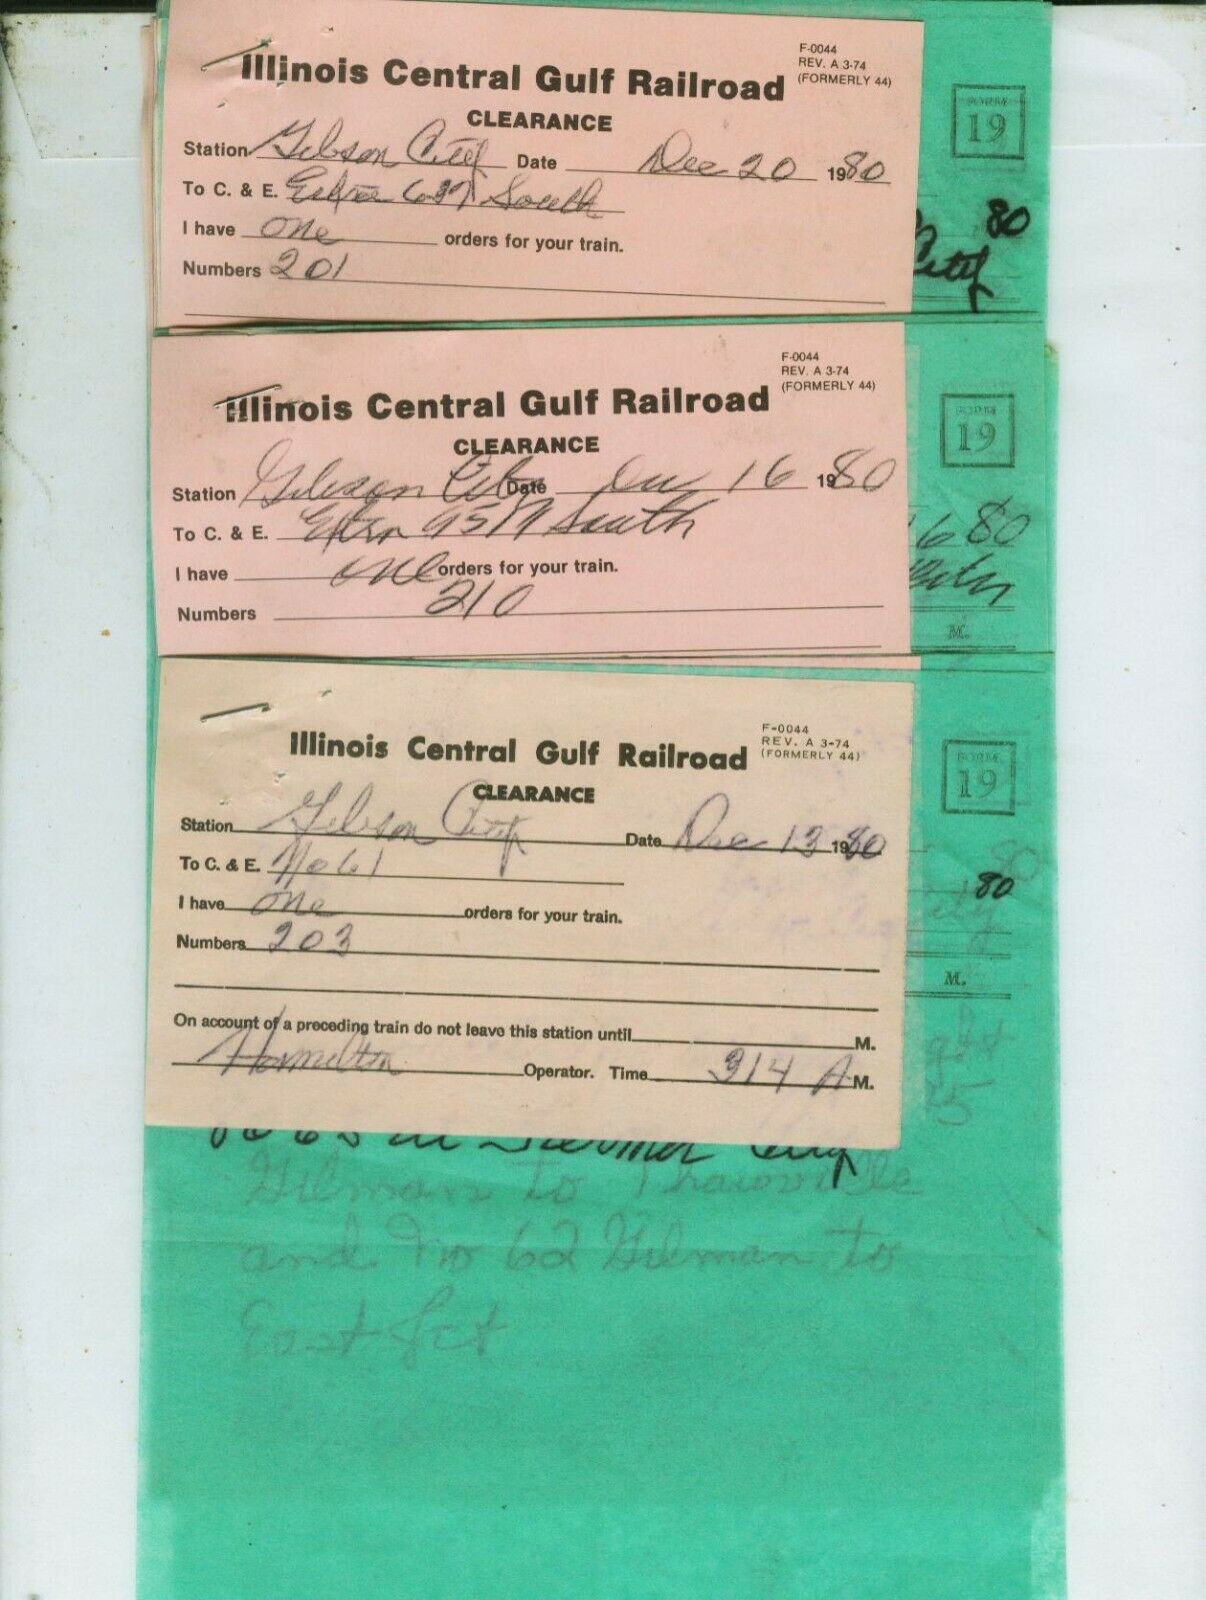 F-0044
REV. A 3-74
(FORMERLY 44)
Illinois Central Gulf Railroad
CLEARANCE
Station Gibson City Date Dec 20 1980
To C. & E. Extra 637 South
I have one orders for your train.
Numbers 201
FORM
19
80
City
F-0044
REV. A 3-74
(FORMERLY 44)
Illinois Central Gulf Railroad
CLEARANCE
Station Gibson City Date Dec 16 1980
To C. & E. Extra South
I have one orders for your train.
Numbers 210
FORM
19
16 80
M.
F-0044
REV. A 3-74
(FORMERLY 44)
Illinois Central Gulf Railroad
CLEARANCE
Station Gibson City Date Dec 13 1980
To C. & E. No 61
I have one orders for your train.
Numbers 203
On account of a preceding train do not leave this station until M.
Hamilton Operator. Time 314 A M.
FORM
19
80
M.
City
Gilman to Thawville
and No 62 Gilman to
East Jct